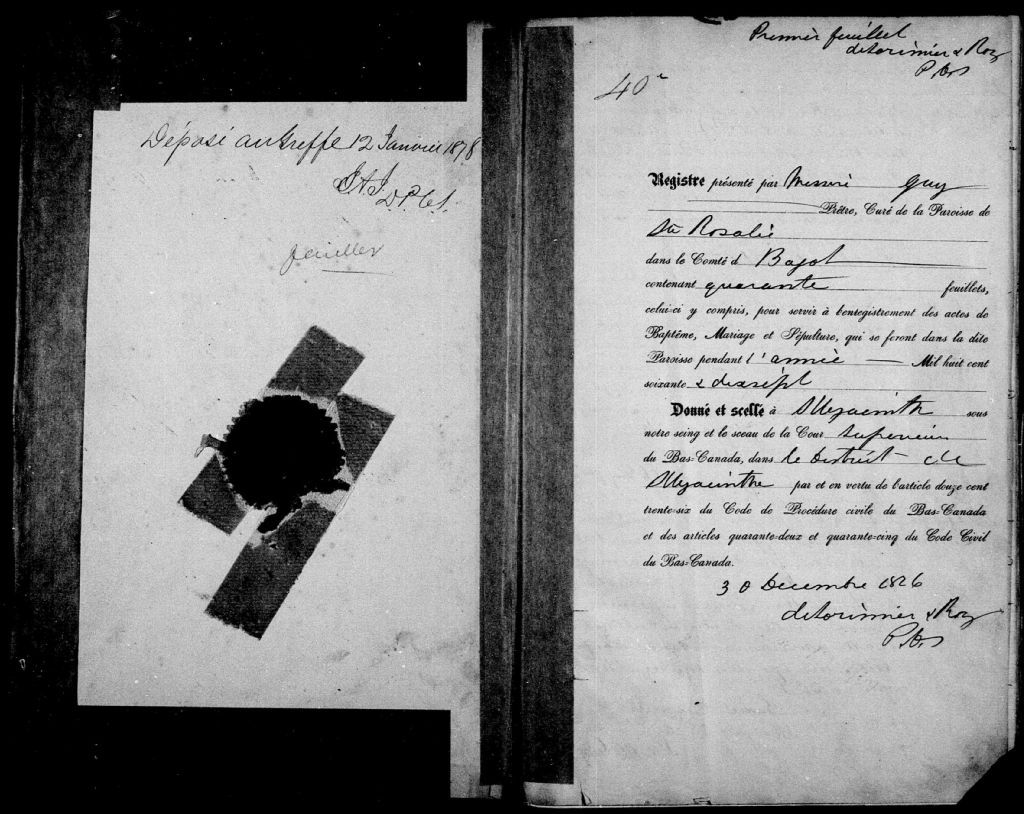 Déposé au Greffe 12 Janvier 1878
feuillet
Premier feuillet
deLorimier & Roy
P.
40
Registre présenté par Messire Guy
Prêtre, Curé de la Paroisse de
Ste Rosalie
dans le Comté d Bagot
contenant quarante feuillets,
celui-ci y compris, pour servir à l'enregistrement des actes de
Baptême, Mariage et Sépulture, qui se feront dans la dite
Paroisse pendant l'année — Mil huit cent
soixante & dixsept
Donné et scellé à St Hyacinthe sous
notre seing et le sceau de la Cour Supérieure
du Bas-Canada, dans le District de
St Hyacinthe par et en vertu de l'article douze cent
trente-six du Code de Procédure civile du Bas-Canada
et des articles quarante-deux et quarante-cinq du Code Civil
du Bas-Canada.
30 Decembre 1876
deLorimier & Roy
P.